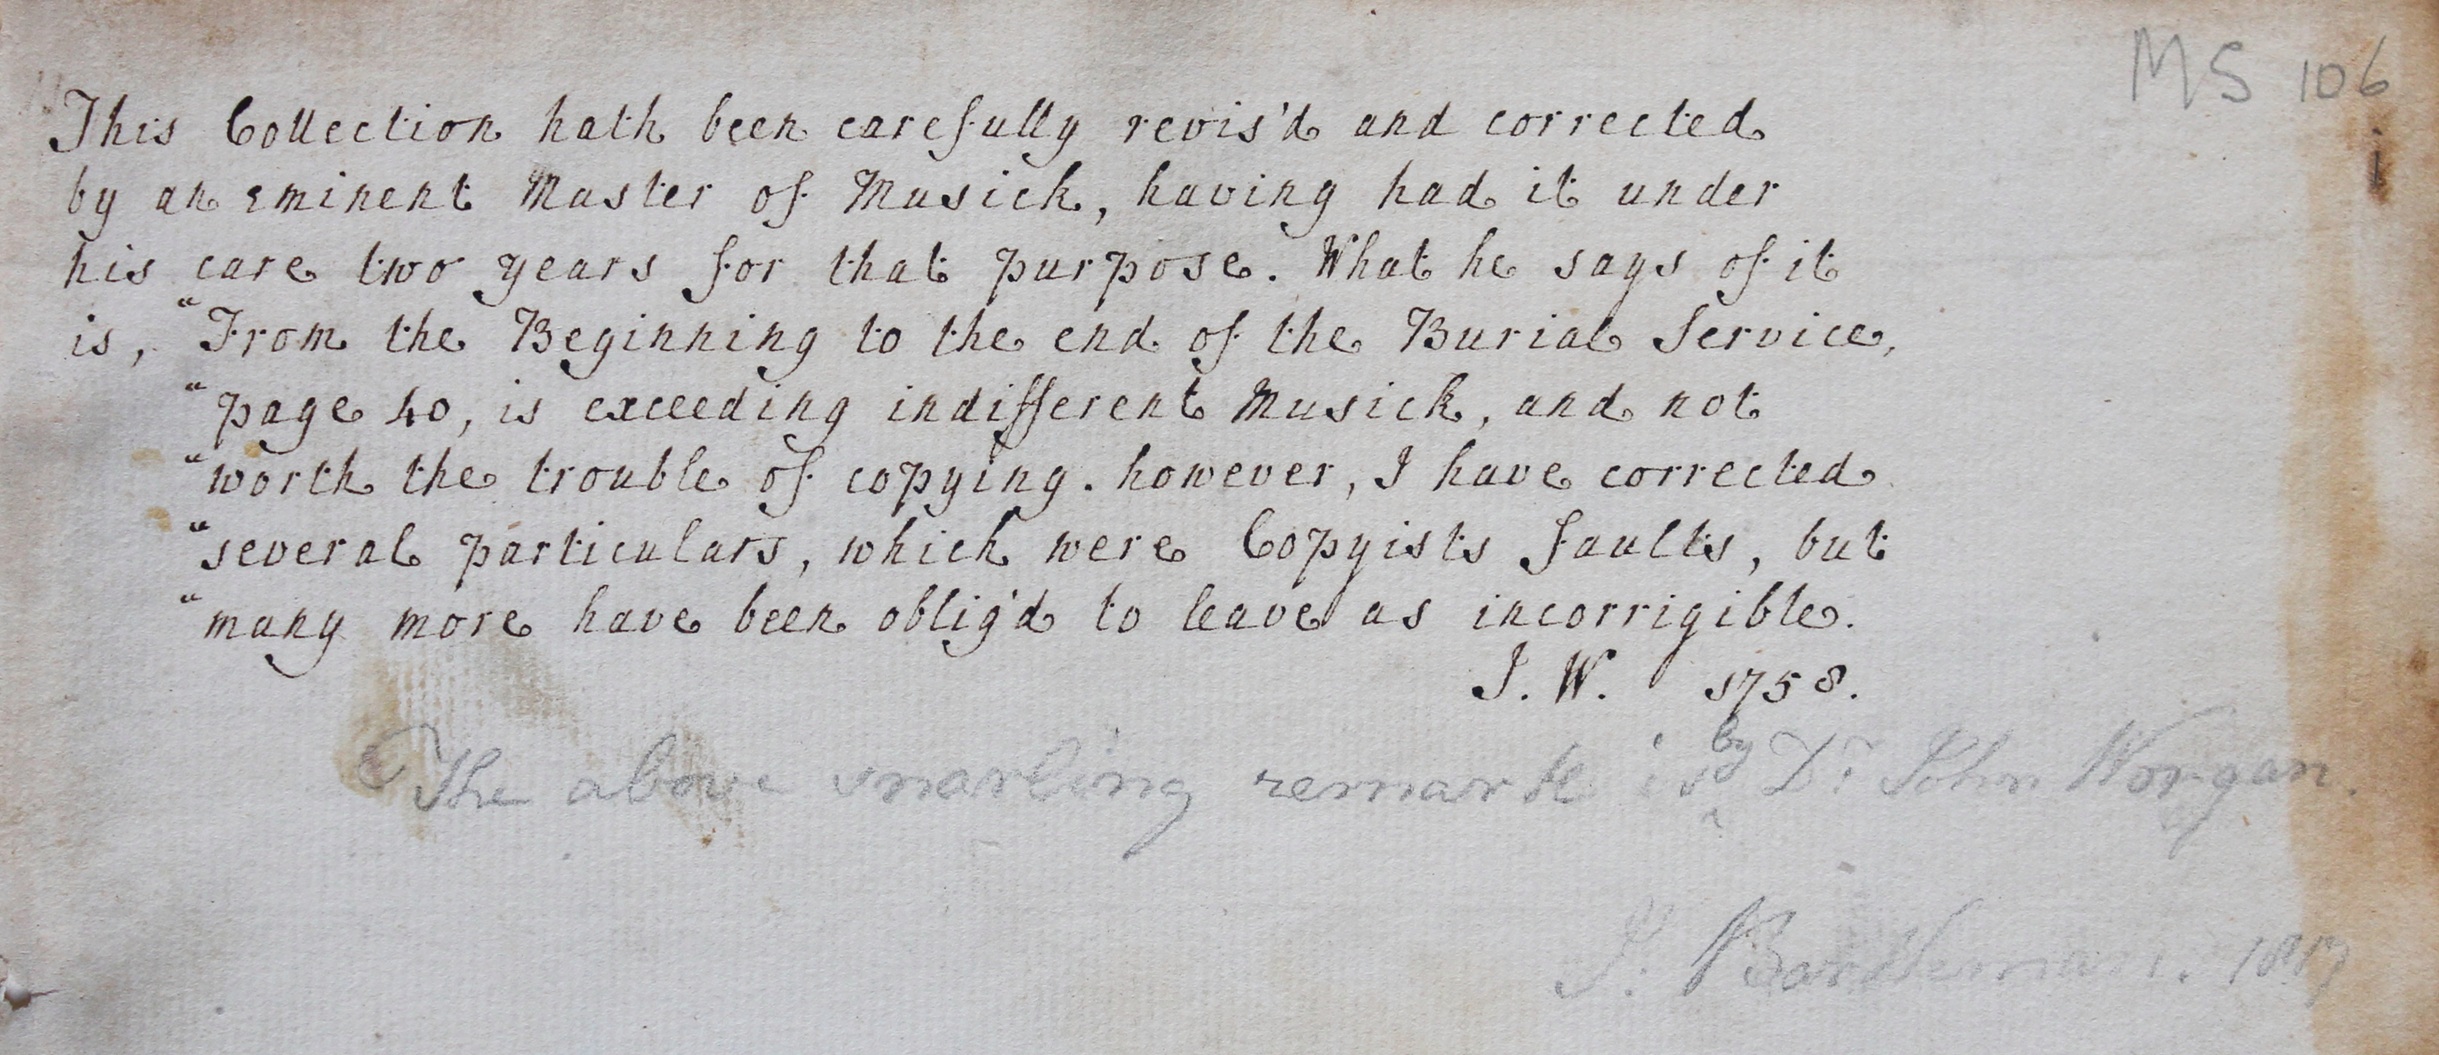 MS 106
i
This Collection hath been carefully revis'd and corrected
by an eminent Master of Musick, having had it under
his care two years for that purpose. What he says of it
is, "From the Beginning to the end of the Burial Service,
"page 40, is exceeding indifferent Musick, and not
"worth the trouble of copying. however, I have corrected
"several particulars, which were Copyists faults, but
"many more have been oblig'd to leave as incorrigible.
J. W. 1758.
The above snarling remark is by Dr. John Worgan.
J. Bartleman.